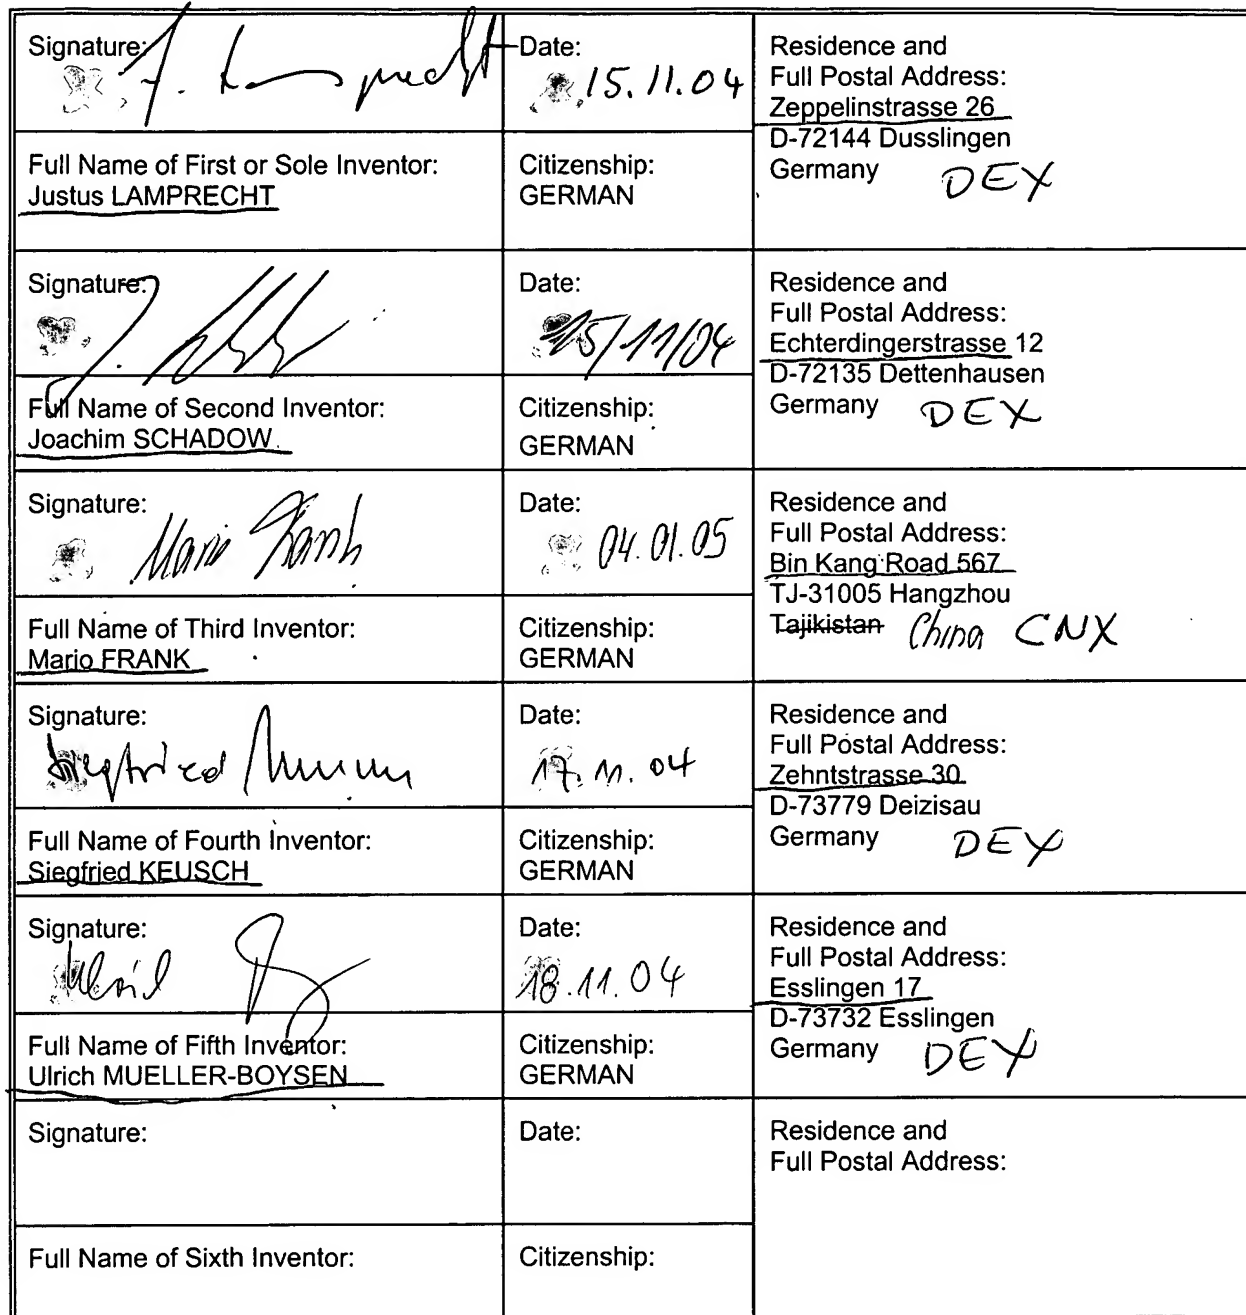 Signature: J. Lamprecht
Date:
15.11.04
Residence and
Full Postal Address:
Zeppelinstrasse 26
D-72144 Dusslingen
Germany DEX
Full Name of First or Sole Inventor:
Justus LAMPRECHT
Citizenship:
GERMAN
Signature: J.
Date:
15/11/04
Residence and
Full Postal Address:
Echterdingerstrasse 12
D-72135 Dettenhausen
Germany DEX
Full Name of Second Inventor:
Joachim SCHADOW
Citizenship:
GERMAN
Signature:
Mario Frank
Date:
04.01.05
Residence and
Full Postal Address:
Bin Kang Road 567
TJ-31005 Hangzhou
Tajikistan China CNX
Full Name of Third Inventor:
Mario FRANK
Citizenship:
GERMAN
Signature:
Siegfried
Date:
17.11.04
Residence and
Full Postal Address:
Zehntstrasse 30
D-73779 Deizisau
Germany DEX
Full Name of Fourth Inventor:
Siegfried KEUSCH
Citizenship:
GERMAN
Signature:
Date:
18.11.04
Residence and
Full Postal Address:
Esslingen 17
D-73732 Esslingen
Germany DEX
Full Name of Fifth Inventor:
Ulrich MUELLER-BOYSEN
Citizenship:
GERMAN
Signature:
Date:
Residence and
Full Postal Address:
Full Name of Sixth Inventor:
Citizenship: